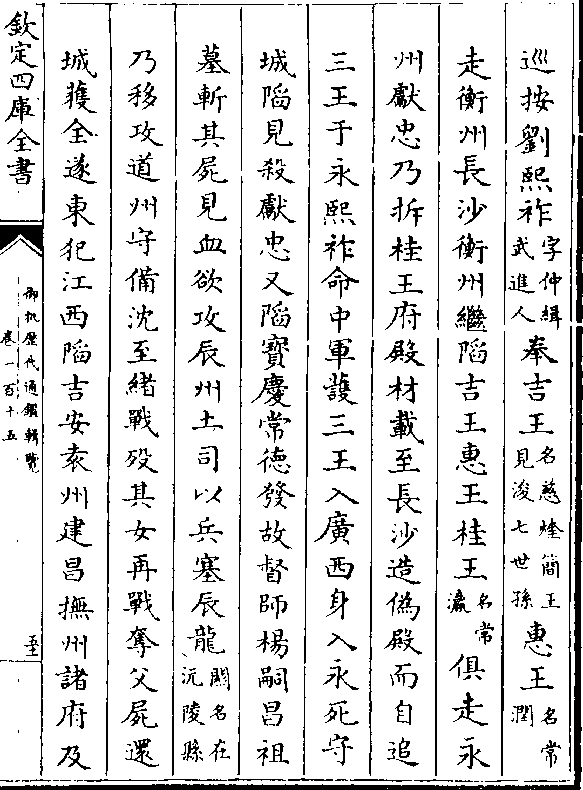 巡按劉熙祚字仲緝武進人奉吉王名慈煃簡王見浚七世孫惠王名常潤
走衡州長沙衡州繼陷吉王惠王桂王名常瀛俱走永
州獻忠乃拆桂王府殿材載至長沙造偽殿而自追
三王于永熙祚命中軍護三王入廣西身入永死守
城陷見殺獻忠又陷寶慶常德發故督師楊嗣昌祖
墓斬其屍見血欲攻辰州土司以兵塞辰龍關名在沅陵縣
乃移攻道州守備沈至緒戰歿其女再戰奪父屍還
城獲全遂東犯江西陷吉安袁州建昌撫州諸府及
欽定四庫全書
御批歷代通鑑輯覽
卷一百十五